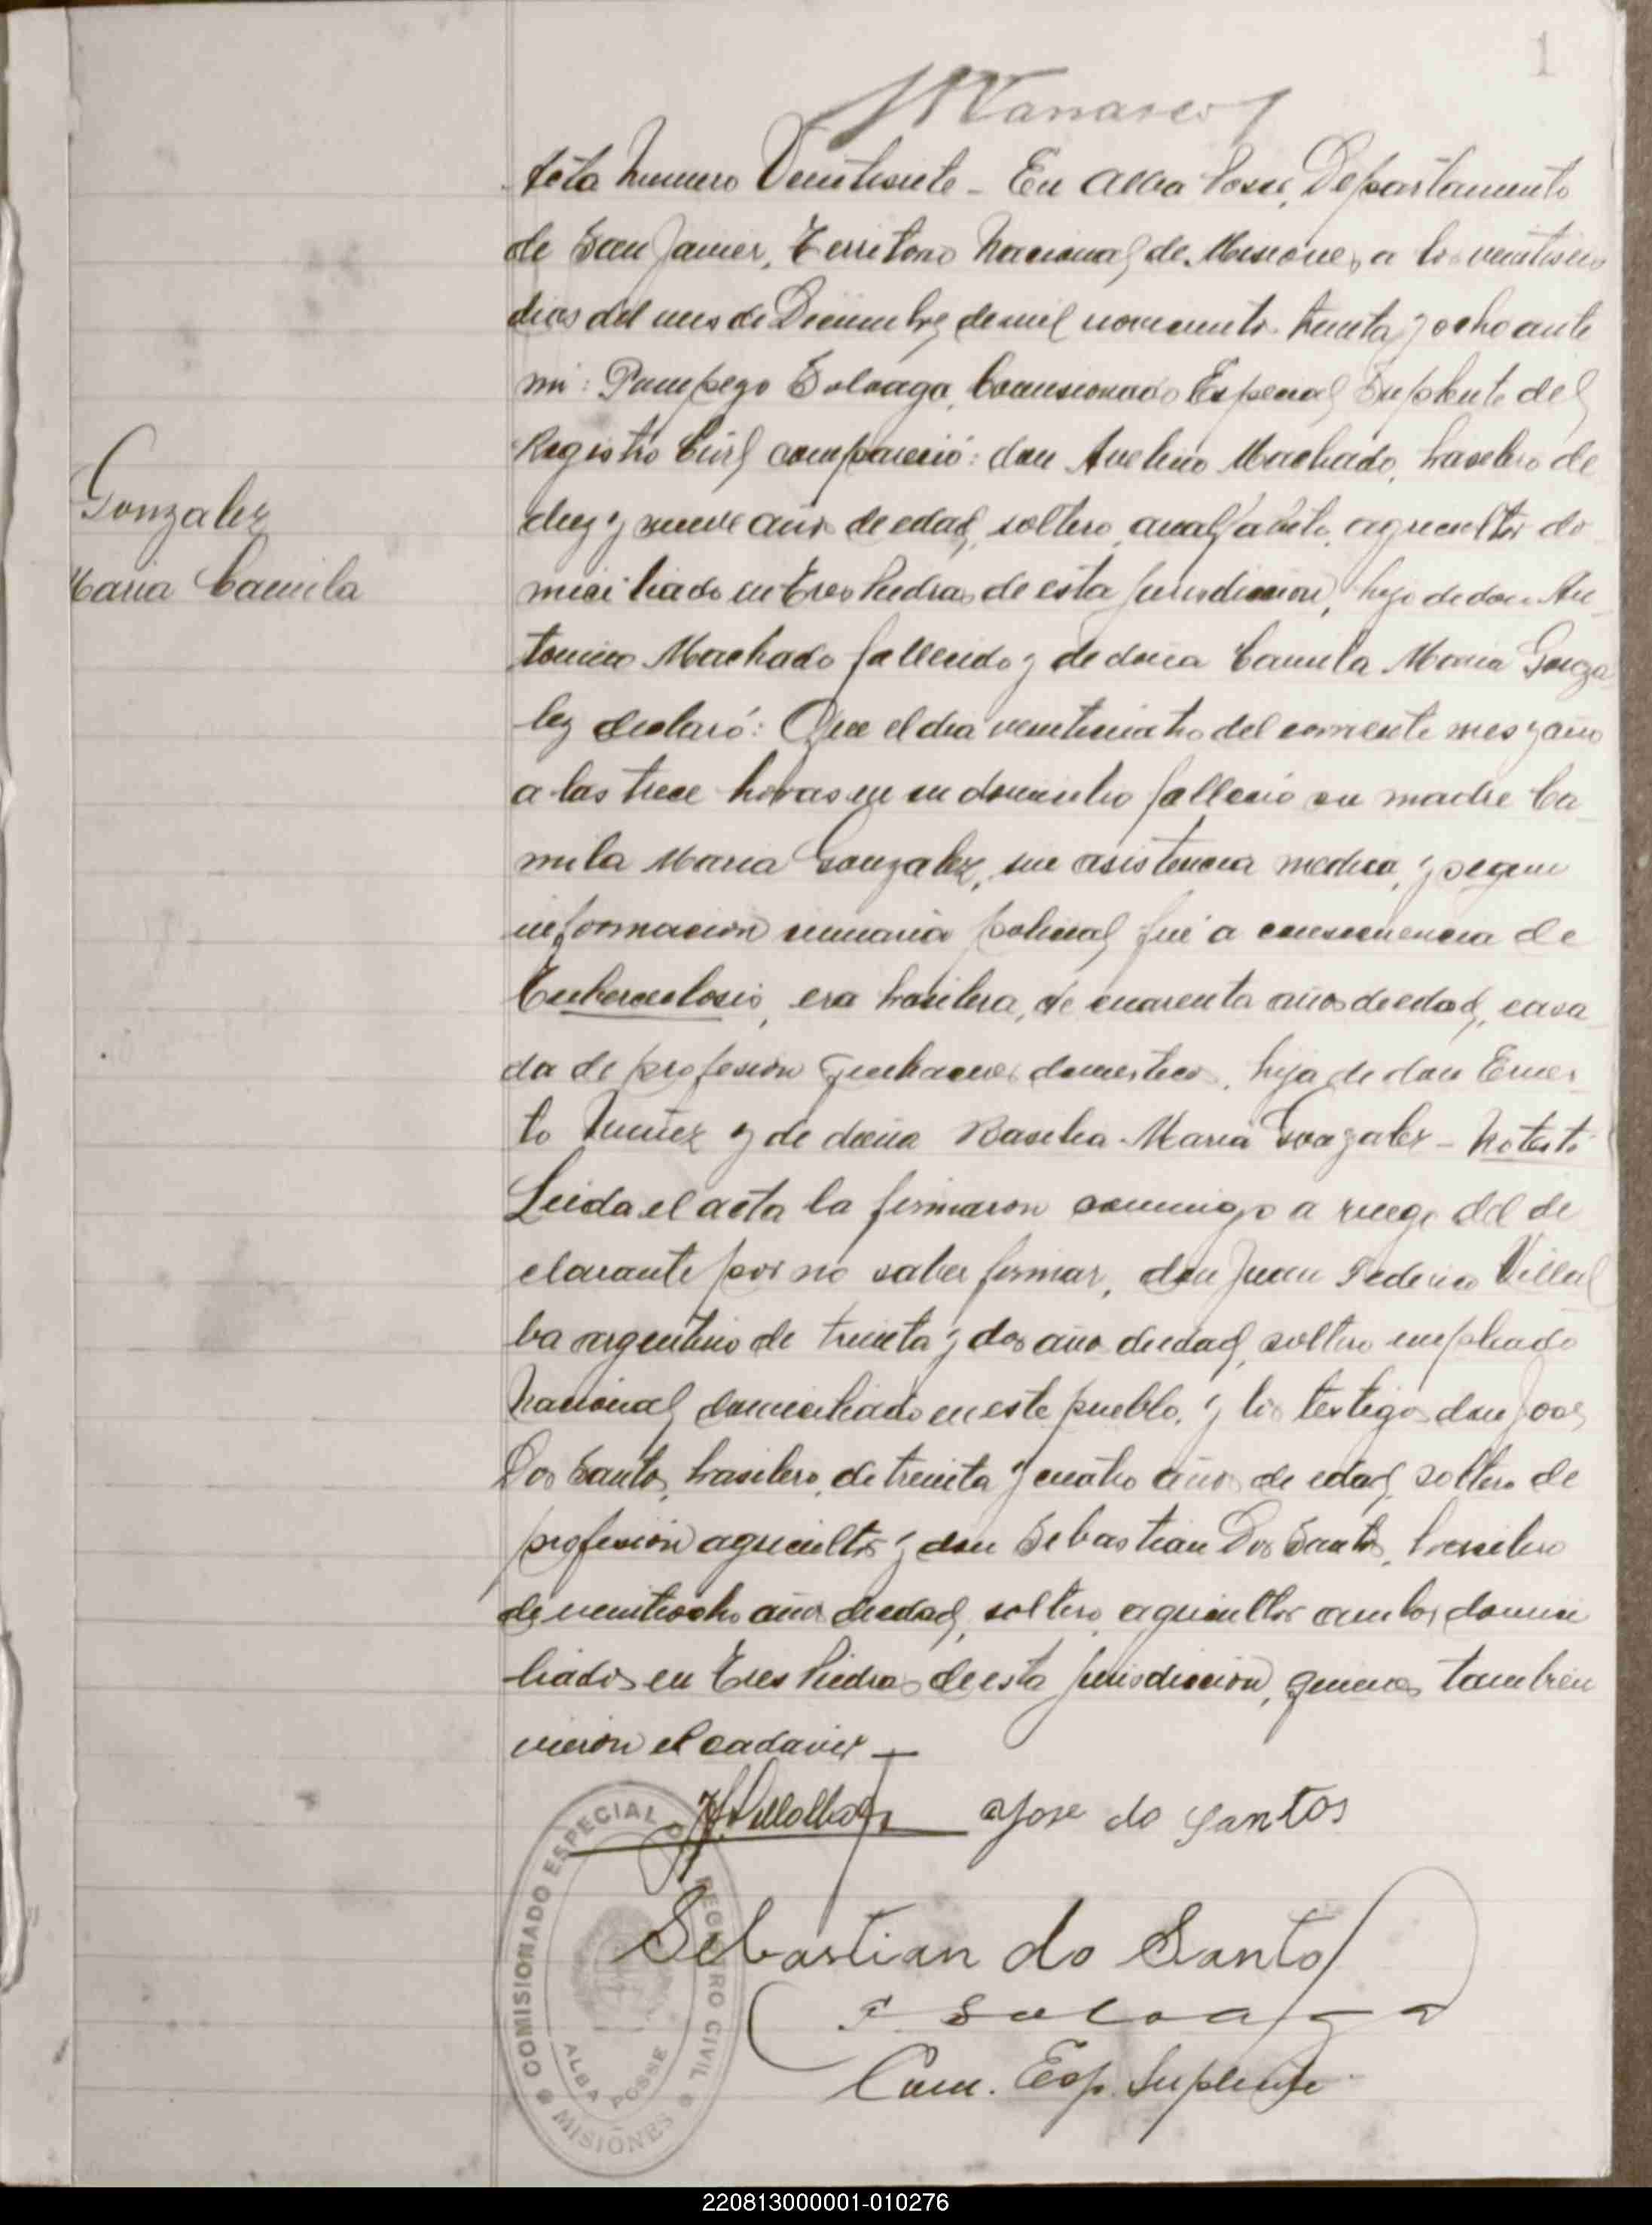 1
Acta Numero Veintisiete - En Alba Posse, Departamento
de San Javier, Territorio Nacional de Misiones, a los veintiseis
dias del mes de Diciembre de mil novecientos treinta y ocho ante
mi: Pompeyo Soloaga, Comisionado Especial Suplente del
Registro Civil compareció: don Avelino Machado, brasilero de
diez y nueve años de edad, soltero, analfabeto, agricultor do
Gonzalez
miciliado en Tres Piedras de esta jurisdiccion, hijo de don An
Maria Camila
tonino Machado fallecido y de doña Camila Maria Gonza
lez declaró: Que el dia veinticuatro del corriente mes y año
a las trece horas en su domicilio falleció su madre Ca
mila Maria Gonzalez, sin asistencia medica, y segun
informacion sumaria policial fué a consecuencia de
Tuberculosis, era brasilera, de cuarenta años de edad, casa
da de profesion quehaceres domesticos, hija de don Ernes
to Nuñez y de doña Basilia Maria Gonzalez - No testó
Leida el acta la firmaron conmigo a ruego del de
clarante por no saber firmar, don Juan Federico Villal
ba argentino de treinta y dos años de edad, soltero empleado
Nacional domiciliado en este pueblo, y los testigos don José
Dos Santos, brasilero, de treinta y cuatro años de edad, soltero de
profesion agricultor y don Sebastian Dos Santos, brasilero
de veintiocho años de edad, soltero, agricultor ambos domici
liados en Tres Piedras de esta jurisdiccion, quienes tambien
vieron el cadaver
J F Villalba
Jose do Santos
Sebastian do Santo
P Soloaga
Com. Esp. Suplente
COMISIONADO ESPECIAL DEL REGISTRO CIVIL
ALBA POSSE
MISIONES
220813000001-010276